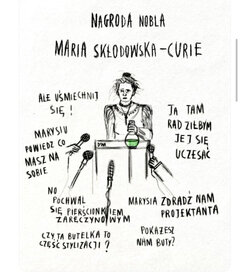 NAGRODA NOBLA
MARIA SKŁODOWSKA-CURIE
ALE UŚMIECHNIJ
SIĘ!
MARYSIU
POWIEDZ CO
MASZ NA
SOBIE
JA TAM
RADZIŁBYM
JEJ SIĘ
UCZESAĆ
NO
POCHWAL
SIĘ PIERŚCIONKIEM
ZARĘCZYNOWYM
MARYSIA ZDRADŹ NAM
PROJEKTANTA
CZY TA BUTELKA TO
CZĘŚĆ STYLIZACJI?
POKAŻESZ
NAM BUTY?